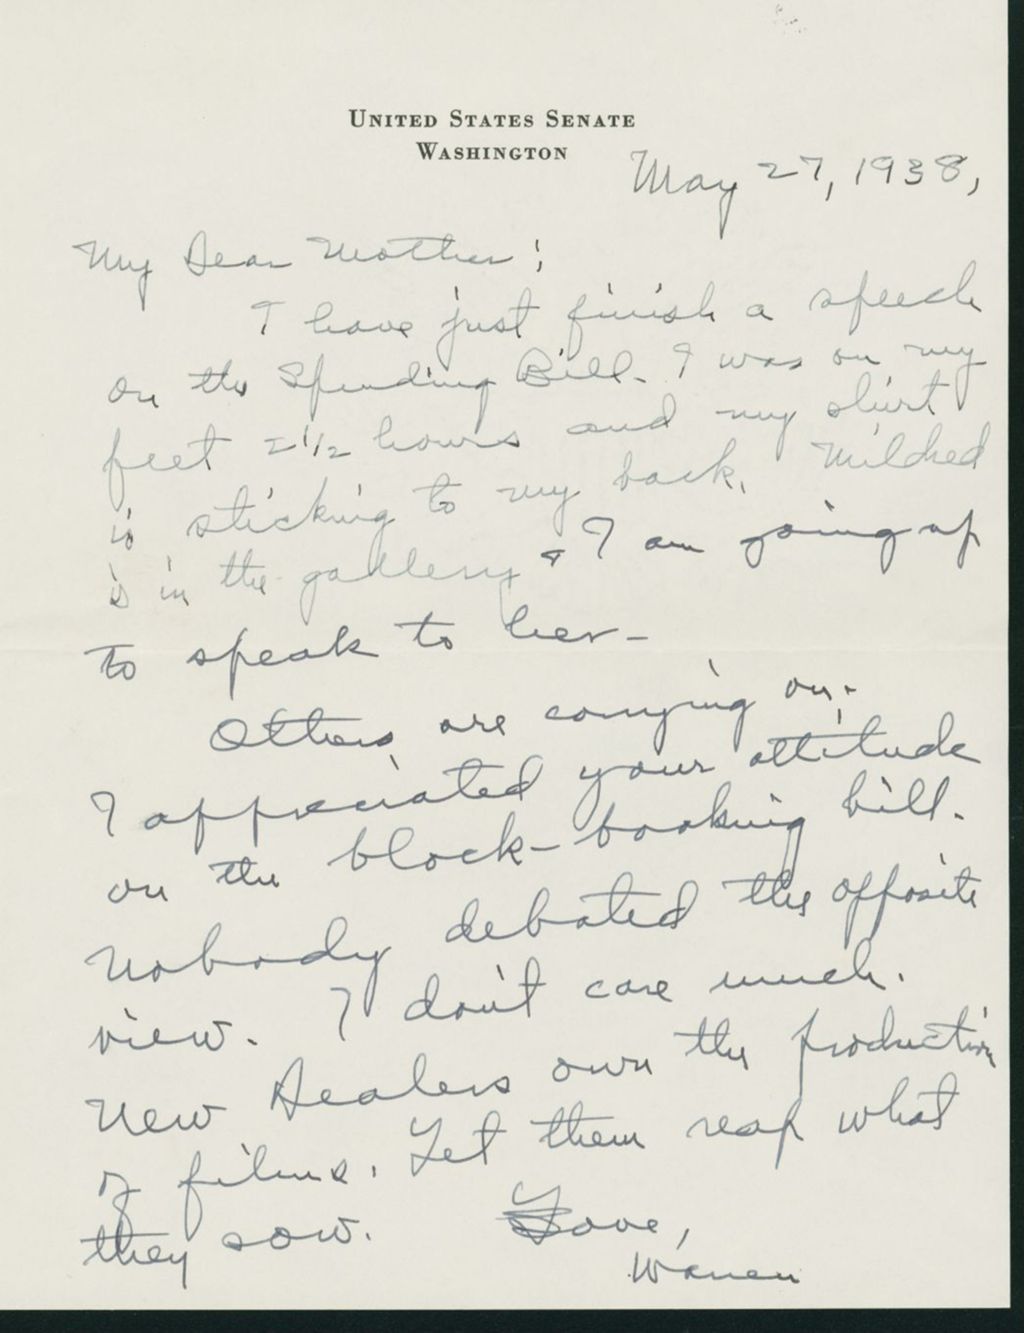 UNITED STATES SENATE
WASHINGTON
May 27, 1938,
My Dear Mother;
I have just finish a speech
on the Spending Bill. I was on my
feet 2 1/2 hours and my shirt
is sticking to my back. Mildred
is in the gallery & I am going up
to speak to her-
Others are carrying on;-
I appreciated your attitude
on the block-booking bill.
Nobody debated the opposite
view. I don't care much.
New Dealers own the production
of films. Let them reap what
they sow. Love,
Warren